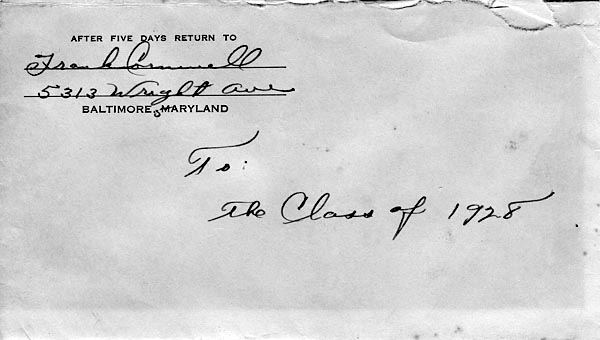 AFTER FIVE DAYS RETURN TO
Frank Cornwell
5313 Wright Ave
BALTIMORE, MARYLAND
To:
The Class of 1928